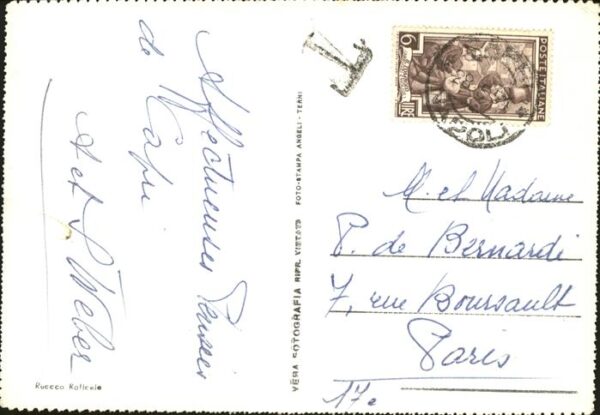 Affectueuses Pensées
de Capri
A et S Weber
Rucece Raffaele
VERA FOTOGRAFIA RIPR. VIETATA
FOTO-STAMPA ANGELI - TERNI
T
6
LIRE
POSTE ITALIANE
M. et Madame
P. de Bernardi
7, rue Boursault
Paris
17e